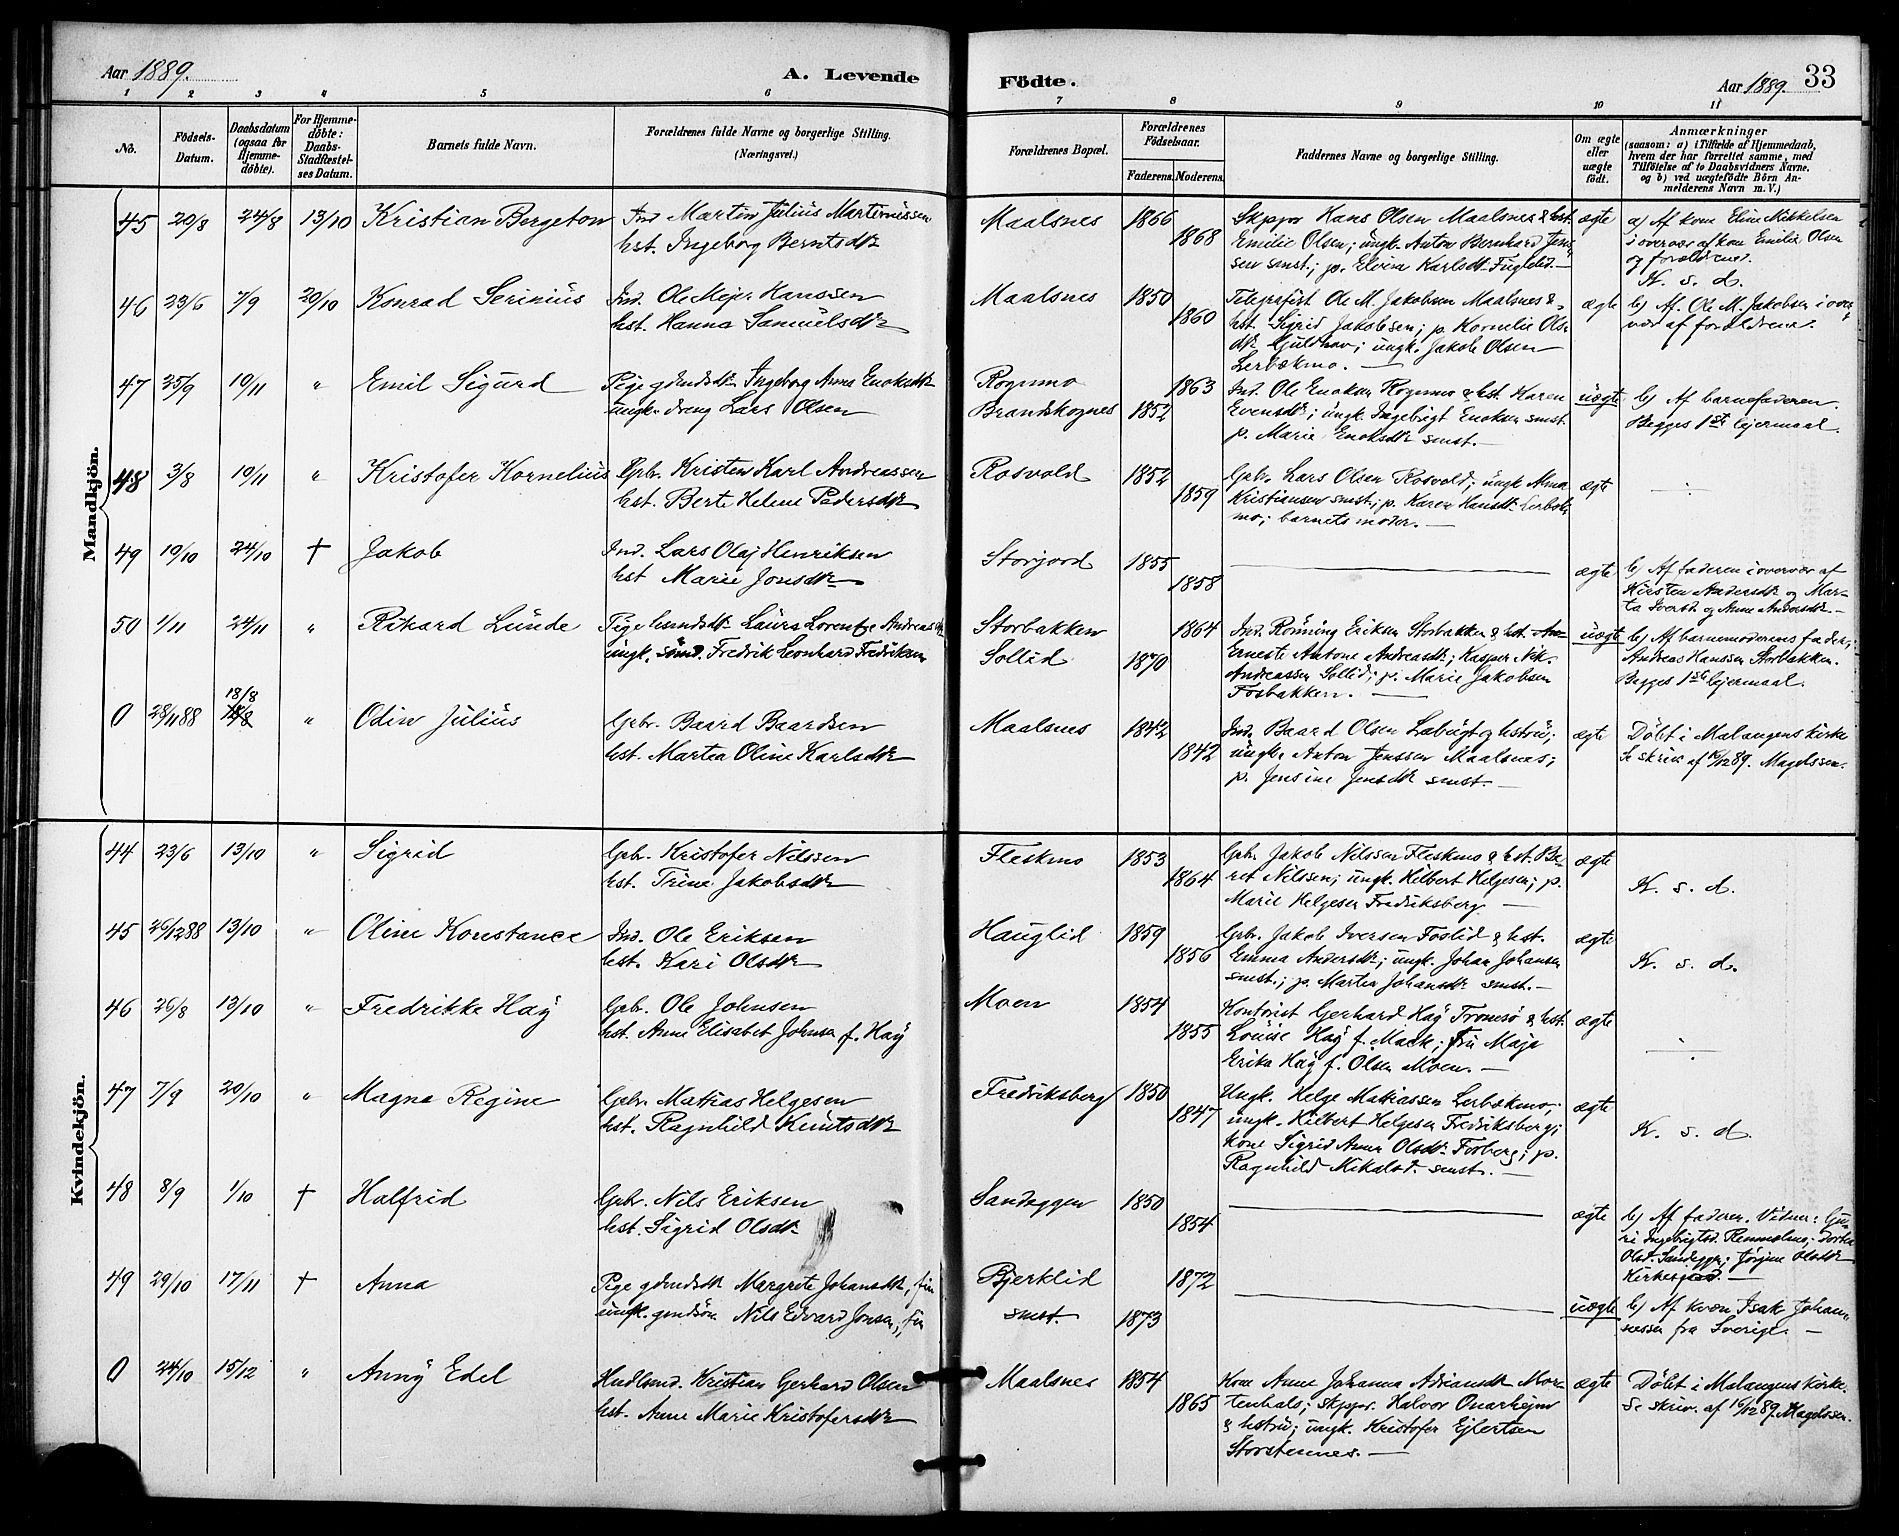 Aar 1889. A. Levende
Födte. Aar 1889. 33
1 2 3 4 5 6
7 8 9 10 11
No. Födsels-Datum. Daabsdatum (ogsaa for Hjemmedöbte). For Hjemmedöbte: Daabs-Stadfæstelses Datum. Barnets fulde Navn. Forældrenes fulde Navne og borgerlige Stilling. (Næringsvei.)
Forældrenes Bopæl. Forældrenes Födselsaar. Faderens. Moderens. Faddernes Navne og borgerlige Stilling. Om ægte eller uægte födt. Anmærkninger (saasom: a) i Tilfælde af Hjemmedaab, hvem der har forrettet samme, med Tilföielse af to Daabsvidners Navne, og b) ved uægtefödte Börn Anmelderens Navn m. V.)
Mandkjön.
45 20/8 24/8 13/10 Kristian Bergeton Ind Martin Julius Martenissen
hst. Ingeborg Berntsdtr
Maalsnes 1866 1868 Skpper Hans Olsen Maalsnes & hst.
Emilie Olsen; ungk. Anton Bernhard Jen-
sen smst.; p. Elvina Karlsdtr Fuglelid.—
ægte a) Af kone Eline Mikkelsen
i overvær af kone Emilie Olsen
og forældrene.
K. s. d.
46 23/6 7/9 20/10 Konrad Serinius Ind. Ole Mejer Hanssen
hst. Hanna Samuelsdtr
Maalsnes 1850 1860 Telegrafist Ole M. Jakobsen Maalsnes &
hst. Sigrid Jakobsen; p. Kornelie Ols-
dtr Guldhav; ungk. Jakob Olsen
Lerbækmo. —
ægte b) Af Ole M. Jakobsen i over-
vær af forældrene.
47 25/9 10/11 " Emil Sigurd Pige gdmdsdtr Ingeborg Anna Enoksdtr
ungk. dreng Lars Olsen
Rognmo
Brandskognes 1852 1863 Ind. Ole Enoksen Rognmo & hst. Karen
Evensdtr; ungk. Ingebrigt Enoksen smst.
p. Marie Enoksdtr smst. —
uægte b) Af barnefaderen.
Begges 1ste lejermaal.
48 3/8 10/11 " Kristofer Kornelius Gbr. Kristen Karl Andreassen
hst. Berte Helene Pedersdtr
Rosvold 1852 1859 Gbr. Lars Olsen Rosvold; ungk. Arna
Kristiansen smst.; p. Karen Hansdtr Lerbæk-
mo; barnets moder. —
ægte
49 10/10 24/10 † Jakob Ind. Lars Olaj Henriksen
hst Marie Jonsdtr
Storjord 1855 1858 ægte b) Af faderen i overvær af
Kirsten Andersdtr og Mar-
ta Iversd. og Anne Andersdtr.—
50 1/11 24/11 " Rikard Lunde Pige hsmdsdtr Laura Lorentze Andreasdtr
ungk. sönd. Fredrik Leonhard Fredriksen
Storbakken
Sollid 1870 1864 Ind. Rönning Eriksen Storbakken & hst. An-
Erneste Antone Andreasdtr; Kasper Nik.
Andreassen Sollid; p. Marie Jakobsen
Fosbakken. —
uægte b) Af barnemoderens fader;
Andreas Hanssen Storbakken.
Begges 1ste lejermaal.
0 28/11 88 18/8 " Odin Julius Gbr. Baard Baardsen
hst. Martea Oline Karlsdtr
Maalsnes 1842 1842 Ind. Baard Olsen Læbugt og hstru;
ungk. Anton Jenssen Maalsnes;
p. Jensine Jensdtr smst. —
ægte Döbt i Malangens kirke
Se skriv. af 16/12 89. Magelssen.
Kvindekjön.
44 23/6 13/10 " Sigrid Gbr. Kristofer Nilssen
hst. Trine Jakobsdtr
Fleskmo 1853 1864 Gbr. Jakob Nilssen Fleskmo & hst. Be-
ret Nilssen; ungk. Hilbert Helgesen; p.
Marie Helgesen Fredriksberg —
ægte K. s. d.
45 26/12 88 13/10 " Oline Konstance Ind. Ole Eriksen
hst. Kari Olsdtr
Hauglid 1859 1856 Gbr. Jakob Iversen Foslid & hst.
Emma Andersdtr; ungk. Johan Johansen
smst.; p. Martea Johansdtr smst. —
ægte K. s. d.
46 26/8 13/10 " Fredrikke Haÿ Gbr. Ole Johnsen
hst. Anne Elisabet Johnsen f. Haÿ
Moen 1854 1855 Kontorist Gerhard Haÿ Tromsø & hst.
Louise Haÿ f. Mack; fru Maja
Erika Haÿ f. Olsen Moen. —
ægte
47 7/9 20/10 " Magna Regine Gbr. Matias Helgesen
hst. Ragnhild Knutsdtr
Fredriksberg 1850 1847 Ungk. Helge Matiassen Lerbækmo;
ungk. Hilbert Helgesen Fredriksberg;
kone Sigrid Anna Olsdtr Fosberg; p.
Ragnhild Mikalsd. smst. —
ægte K. s. d.
48 8/9 1/10 † Halfrid Gbr. Nils Eriksen
hst. Sigrid Olsdtr
Sandeggen 1850 1854 ægte b) Af faderen. Vidner: Gu-
ri Ingebrigtsd. Remmelmo; Dortea
Olsd. Sandeggen; Jörgine Olsdtr
Kirkesjord. —
49 29/10 17/11 † Anna Pige gdmdsdtr Margrete Johansdtr, fin
ungk. gmdsön Nils Edvard Jonsen, fin
Bjerklid
smst. 1873 1872 uægte b) Af kvæn Isak Johan-
nessen fra Sverige. —
0 24/10 15/12 " Anny Edel Hndlsmd. Kristian Gerhard Olsen
hst. Anne Marie Kristofersdtr
Maalsnes 1854 1865 Kone Anne Johanna Adriansdtr Mor-
tenhals; skpper Halvor Onarheim
& hstru; ungk. Kristofer Ejlertsen
Storstennes. —
ægte Döbt i Malangens kirke.
Se skriv. af 16/12 89. Magelssen.